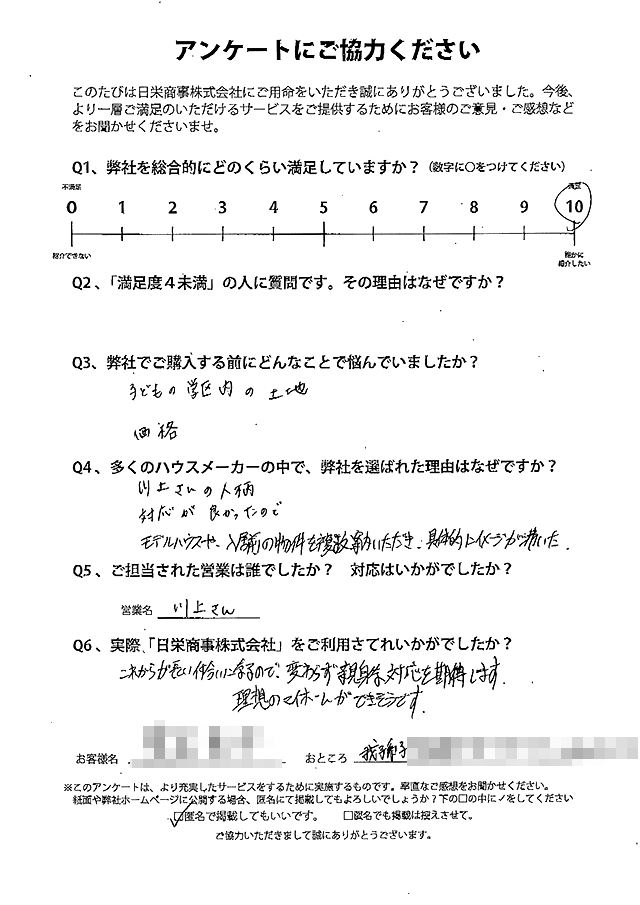 アンケートにご協力ください
このたびは日栄商事株式会社にご用命をいただき誠にありがとうございました。今後、
より一層ご満足のいただけるサービスをご提供するためにお客様のご意見・ご感想など
をお聞かせくださいませ。
Q1、弊社を総合的にどのくらい満足していますか?(数字に○をつけてください)
不満足 満足
0 1 2 3 4 5 6 7 8 9 10
紹介できない 確かに
紹介したい
Q2、「満足度4未満」の人に質問です。その理由はなぜですか?
Q3、弊社でご購入する前にどんなことで悩んでいましたか?
子どもの学区内の土地
価格
Q4、多くのハウスメーカーの中で、弊社を選ばれた理由はなぜですか?
川上さんの人柄
対応が良かったので
モデルハウスや、入居前の物件を複数案内いただき、具体的にイメージが湧いた.
Q5、ご担当された営業は誰でしたか? 対応はいかがでしたか?
営業名 川上さん
Q6、実際、「日栄商事株式会社」をご利用さてれいかがでしたか?
これからが長い付合いになるので、変わらず親身な対応を期待します.
理想のマイホームができそうです.
お客様名 おところ 我孫子
※このアンケートは、より充実したサービスをするために実施するものです。率直なご感想をお聞かせください。
紙面や弊社ホームページに公開する場合、匿名にて掲載してもよろしいでしょうか?下の□の中に✓をしてください
☑匿名で掲載してもいいです。 □匿名でも掲載は控えさせて。
ご協力いただきまして誠にありがとうございます。